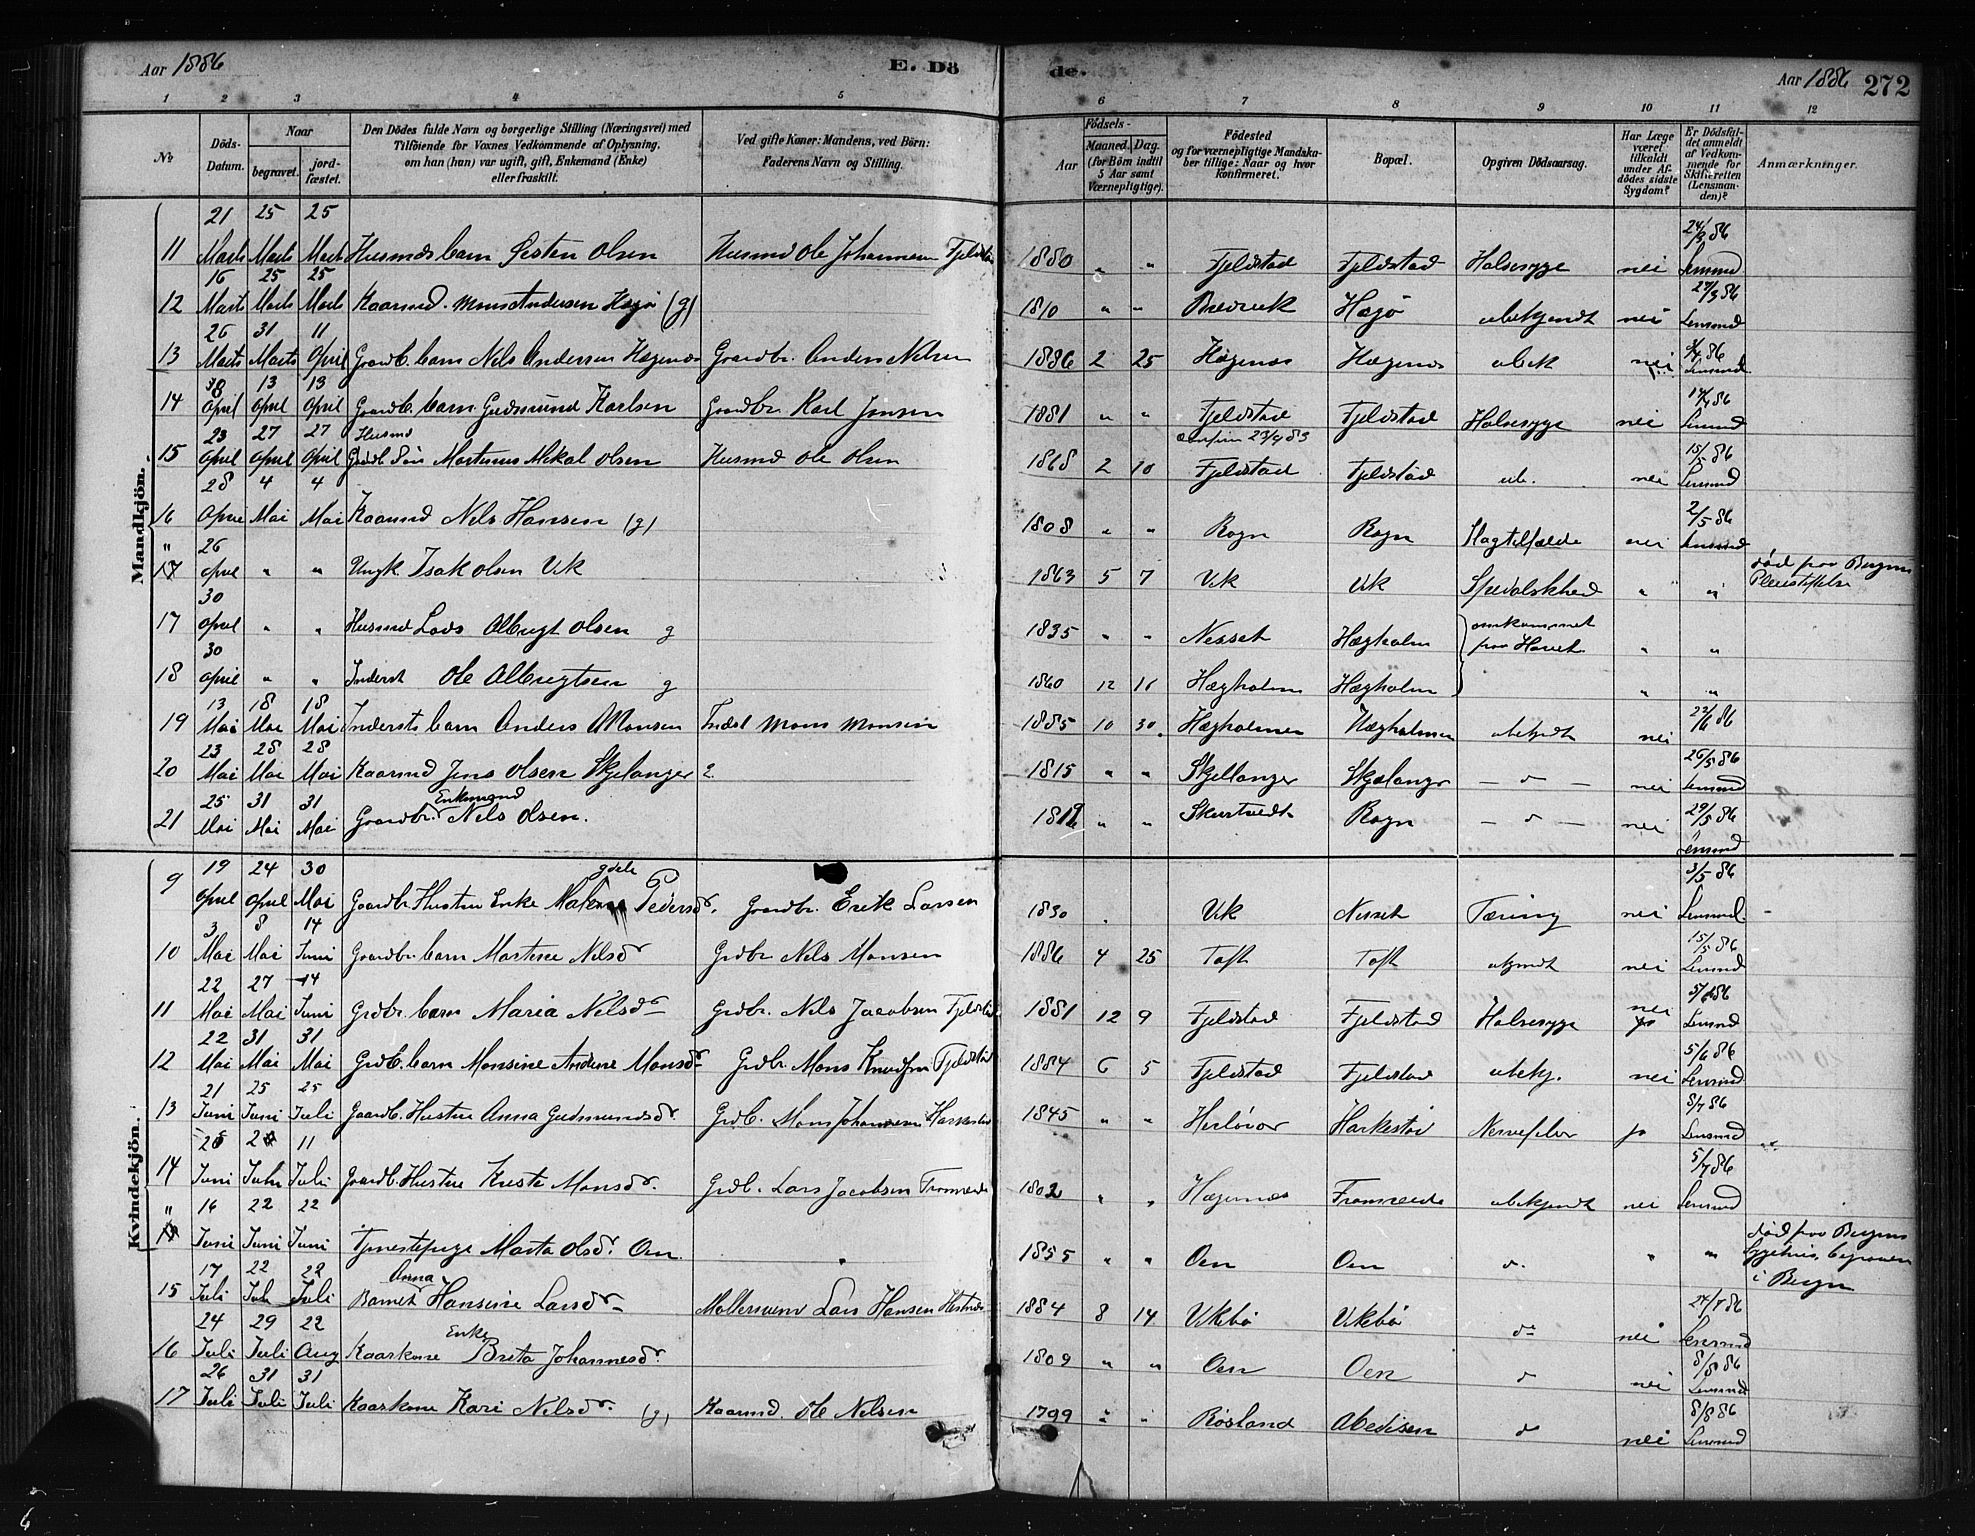 Aar 1886 E. Dö de. Aar 1886 272
1 2 3 4 5 6 7 8 9 10 11 12
No Döds-Datum. Naar begravet. jord-fæstet. Den Dödes fulde Navn og borgerlige Stilling (Næringsvei) med Tilföiende for Voxnes Vedkommende af Oplysning, om han (hun) var ugift, gift, Enkemand (Enke) eller fraskilt. Ved gifte Koner: Mandens, ved Börn: Faderens Navn og Stilling. Födsels- Aar Maaned. Dag. (for Börn indtil 5 Aar samt Værnepligtige). Födested og for værnepligtige Mandskaber tillige: Naar og hvor konfirmeret. Bopæl. Opgiven Dödsaarsag. Har Læge været tilkaldt under Afdödes sidste Sygdom? Er Dödsfaldet anmeldt af Vedkommende for Skifteretten (Lensmanden)? Anmærkninger.
Mandkjön.
11 21 Marts 25 Marts 25 Marts Husmds barn Sesten Olsen Husmd Ole Johannesen Fjeldstad 1880 " " Fjeldstad Fjeldstad Halsesyge nei 24/3 86 Lensmd
12 16 Marts 25 Marts 25 Marts Kaarmd. Mons Andersen Hægø (g) 1810 " " Bredvik Hægø ubekjendt nei 27/3 86 Lensmd
13 26 Marts 31 Marts 11 April Gaardb. barn Nils Andersen Hægenæs Gaardbr. Anders Nilsen 1886 2 25 Hægenæs Hægenæs ubek nei 86 Lensmd
14 8 April 13 April 13 April Gaardb. barn Gudmund Karlsen Gaardbr. Karl Jensen 1881 " " Fjeldstad Fjeldstad Halsesyge nei 86 Lensmd
15 23 April 27 April 27 April Husmd Søn Martinus Mikal Olsen Husmd Ole Olsen 1868 2 10 Fjeldstad Fjeldstad ub. nei 15/5 86 Lensmd
16 28 April 4 Mai 4 Mai Kaarmd Nils Hansen (g) 1808 " " Rogn Rogn Slagtilfælde nei 2/5 86 Lensmd
" 17 26 April " " Ungk Isak Olsen Vik 1863 5 7 Vik Vik Spedalskhed " " død paa Bergens Pleiestiftelse
17 30 April " " Husmd Lars Albrigt Olsen g 1835 " " Nesset Hægholm omkommet paa Havet " "
18 30 April " " Inderst Ole Albrigtsen g 1860 12 16 Hægholm Hægholm " "
19 13 Mai 18 Mai 18 Mai Indersts barn Anders Monsen Indst Mons Monsen 1885 10 30 Hægholmen Hægholmen ubekjdt nei 22/6 86
20 23 Mai 28 Mai 28 Mai Kaarmd Jens Olsen Skjelanger 2. 1815 " " Skjellanger Skjelanger — d — nei 26/5 86 Lensmd
21 25 Mai 31 Mai 31 Mai Gaardbr. Enkemand Nils Olsen. " " Skurtvedt Rogn — d — nei 29/5 86 Lensmd
Kvindekjön.
9 19 April 24 April 30 Mai Gaardbr. Hustru Enke Pedersdr. Gaardbr. Erik Larsen 1830 . Vik Nesset Tæring nei 3/5 86 Lensmd.
10 3 Mai 8 Mai 14 Juni Gaardbr. barn Martine Nilsdr Grdbr. Nils Monsen 1886 4 25 Toft Toft ukjendt nei 15/5 86 Lensmd
11 22 Mai 27 Mai 14 Juni Grdbr. barn Maria Nilsdr Grdbr. Nils Jacobsen Fjeldstad 1881 12 9 Fjeldstad Fjeldstad Halsesyge nei 5/6 86 Lensmd
12 22 Mai 31 Mai 31 Mai Grdb. barn Monsine Andrine Monsdr Grdbr. Mons Knudsen Fjeldstad 1884 6 5 Fjeldstad Fjeldstad ubekj. nei 5/6 86 Lensmd
13 21 Juni 25 Juni 25 Juli Gaardb. Hustru Anna Gudmundsdr. Grdb. Mons Johannesen Harkestad 1845 " " Herløvær Harkestad Nervefeber ja 8/7 86 Lensmd
14 Juni Juli 11 Juli Gaardb. Hustru Kristi Monsdr. Grdb. Lars Jacobsen Framreide 1802 " " Hægernæs Framreide ubekjendt nei 5/7 86 Lensmd
" 16 Juni 22 Juni 22 Juni Tjenestepige Marta Olsdr. Oen " 1855 " " Oen Oen d. " " død paa Bergens Sygehus, begraven i Bergen
15 17 Juli 22 Juli 22 Juli Barnet Anna Hansine Larsdr Møllersvend Lars Hansen Hestnæs 1884 8 14 Vikebø Vikebø do nei 24/7 86 Lensmd
16 24 Juli 29 Juli 22 Aug Kaarkone Enke Brita Johannesdr. 1809 " " Oen Oen d nei 8/8 86 Lensmd
17 26 Juli 31 Juli 31 Juli Kaarkone Kari Nilsdr. (g) Kaarmd. Ole Nilsen 1799 " " Røsland d nei 8/8 86 Lensmd
6